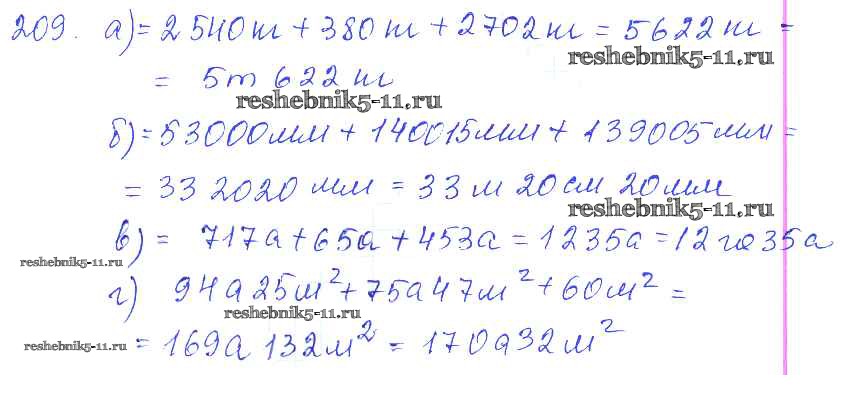 209. а) = 2540 кг + 380 кг + 2702 кг = 5622 кг =
reshebnik5-11.ru
= 5т 622 кг
reshebnik5-11.ru
б) = 53000мм + 140015мм + 139005мм =
= 332020 мм = 33м 20см 20мм
reshebnik5-11.ru
в) = 717а + 65а + 453а = 1235а = 12 га 35а
reshebnik5-11.ru
г) 94а 25м² + 75а 47м² + 60м² =
reshebnik5-11.ru
reshebnik5-11.ru = 169а 132м² = 170а 32м²